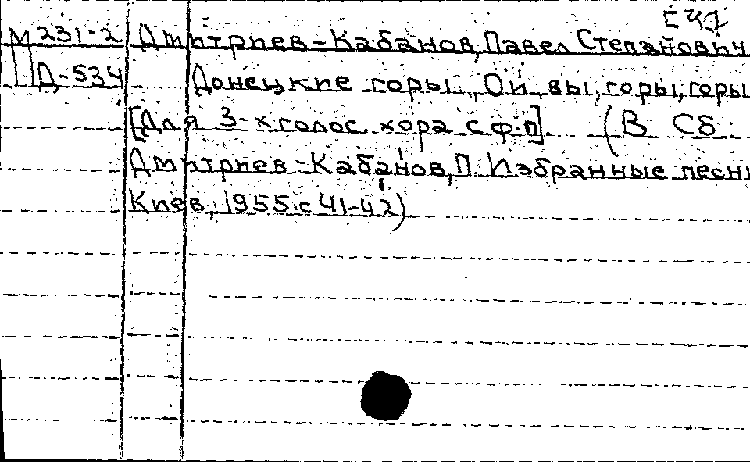 М231-2 Дмитриев-Кабанов, Павел Степанович
Д-534 Донецкие горы. Ой вы, горы, горы
[Для 3-х голос. хора с ф-п]. (В сб.
Дмитриев-Кабанов, П. Избранные песни
Киев, 1955. с 41-42)